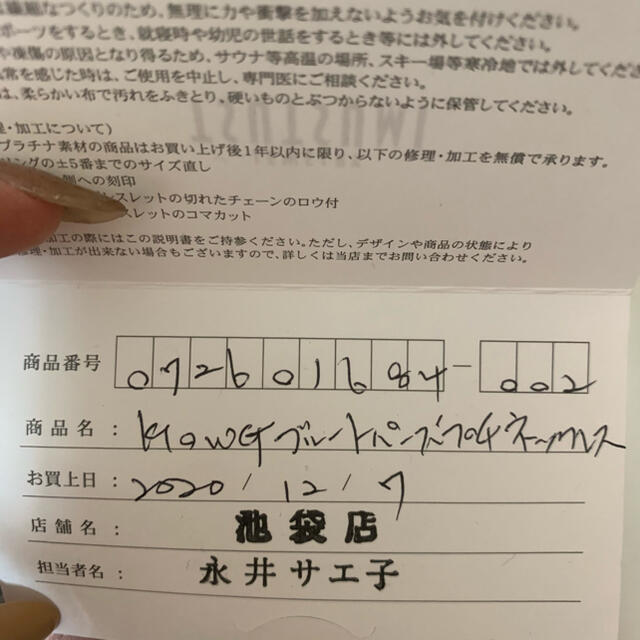 繊細なつくりのため、無理に力や衝撃を加えないようお気を付けください。
ポーツをするとき、就寝時や幼児の世話をするとき等には外してください。
や凍傷の原因となり得るため、サウナ等高温の場所、スキー場等寒冷地では外してくださ
常を感じた時は、ご使用を中止し、専門医にご相談ください。
は、柔らかい布で汚れをふきとり、硬いものとぶつからないように保管してください。
理・加工について)
プラチナ素材の商品はお買い上げ後1年以内に限り、以下の修理・加工を無償で承ります。
リングの±5番までのサイズ直し
側への刻印
レスレットの切れたチェーンのロウ付
スレットのコマカット
加工の際にはこの説明書をご持参ください。ただし、デザインや商品の状態により
修理・加工が出来ない場合もございますので、詳しくは当店までお問い合わせください。
商品番号 072601684-002
商品名: K10WG ブルートパーズ ネックレス
お買上日: 2020/12/7
店舗名: 池袋店
担当者名: 永井サエ子